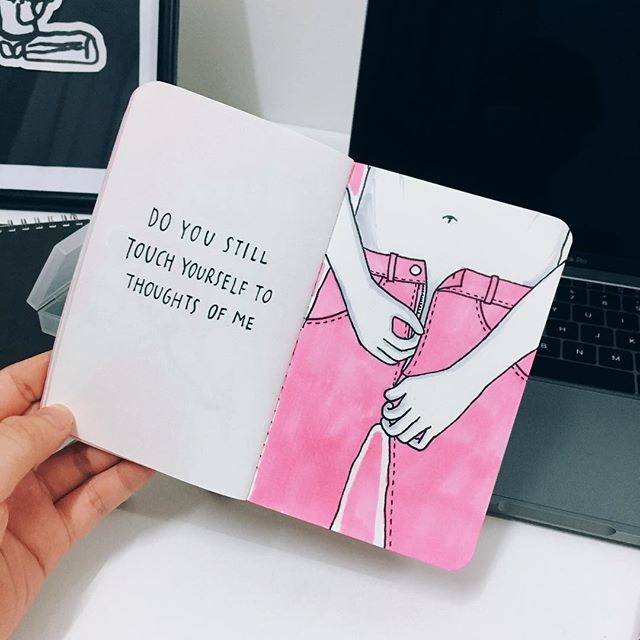 DO YOU STILL
TOUCH YOURSELF TO
THOUGHTS OF ME